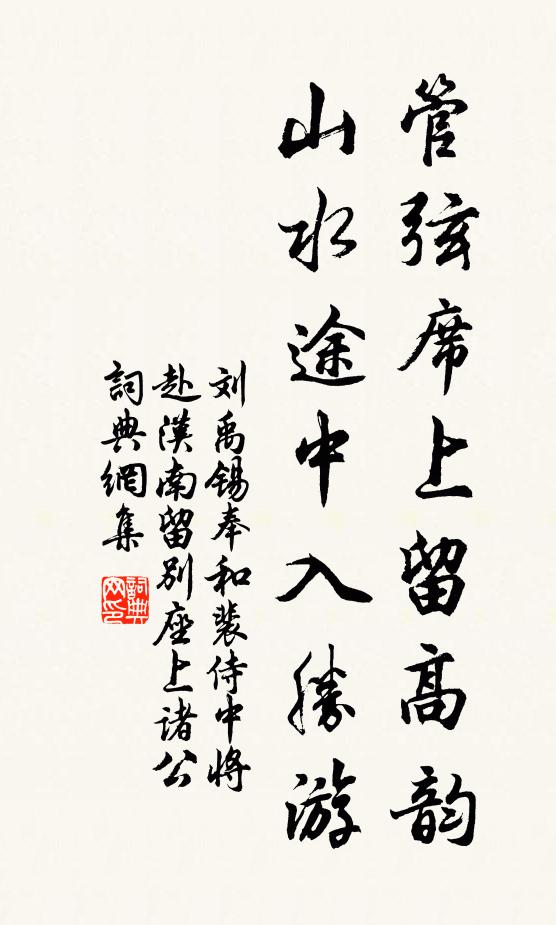 管弦席上留高韵
山水途中入勝游
刘禹锡奉和裴侍中将
赴漢南留别座上诸公
詞典網集
詞典
网印